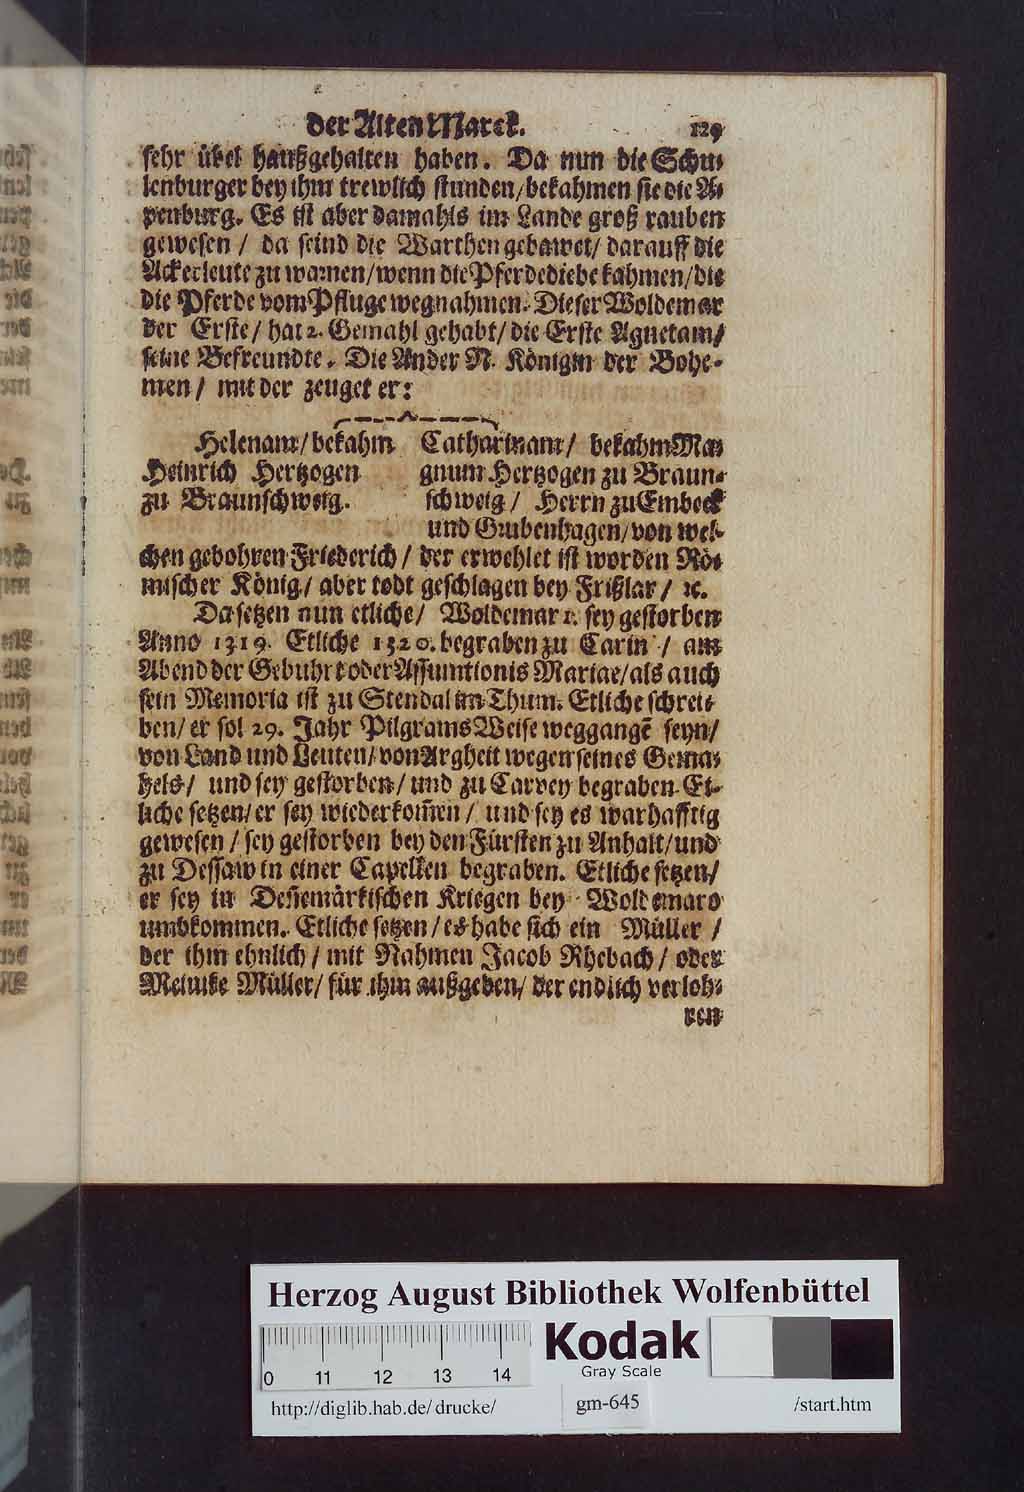 der Alten Marck. 129
sehr übel haußgehalten haben. Da nun die Schu-
lenburger bey ihm trewlich stunden/ bekahmen sie die A-
penburg. Es ist aber damahls im Lande groß rauben
gewesen / da seind die Warthen gebawet/ darauff die
Ackerleute zu warnen/ wenn die Pferdediebe kahmen/ die
die Pferde vom Pfluge wegnahmen. Dieser Woldemar
der Erste/ hat 2. Gemahl gehabt/ die Erste Agnetam/
seine Befreundte. Die Ander N. Königin der Bohe-
men/ mit der zeuget er:
Helenam/ bekahm
Heinrich Hertzogen
zu Braunschweig.
Catharinam/ bekahm Ma-
gnum Hertzogen zu Braun-
schweig / Herrn zu Embeck
und Grubenhagen/ von wel-
chen gebohren Friederich / der erwehlet ist worden Rö-
mischer König/ aber todt geschlagen bey Frißlar / ꝛc.
Da setzen nun etliche/ Woldemar 1. sey gestorben
Anno 1319. Etliche 1320. begraben zu Carin / am
Abend der Gebuhrt oder Assumtionis Mariae/ als auch
sein Memoria ist zu Stendal im Thum. Etliche schrei-
ben/ er sol 29. Jahr Pilgrams Weise weggangē seyn/
von Land und Leuten/ von Argheit wegen seines Gema-
hels/ und sey gestorben/ und zu Carvey begraben. Et-
liche setzen/ er sey wiederkom̄en/ und sey es warhafftig
gewesen / sey gestorben bey den Fürsten zu Anhalt/ und
zu Dessaw in einer Capellen begraben. Etliche setzen/
er sey in Denemärkischen Kriegen bey Woldemaro
umbkommen. Etliche setzen/ es habe sich ein Müller /
der ihm ehnlich/ mit Nahmen Jacob Rhebach/ oder
Meinike Müller/ für ihm außgeben/ der endlich verloh-
ren
Herzog August Bibliothek Wolfenbüttel
Kodak
Gray Scale
0 11 12 13 14
http://diglib.hab.de/drucke/ gm-645 /start.htm